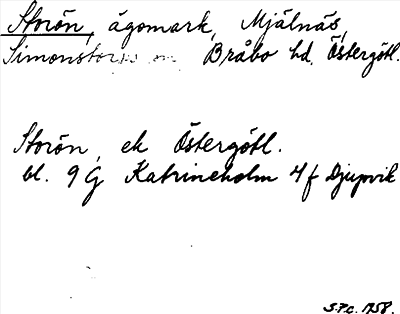 Storön, ägomark, Mjälnäs,
Simonstorps sn, Bråbo hd, Östergötl.
Storön, ek Östergötl.
bl. 9 G Katrineholm 4 f Djupvik
S.P.c. 1958.